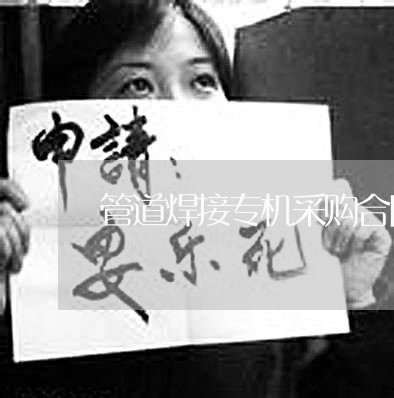 申請：
管道焊接专机采购合
要乐死